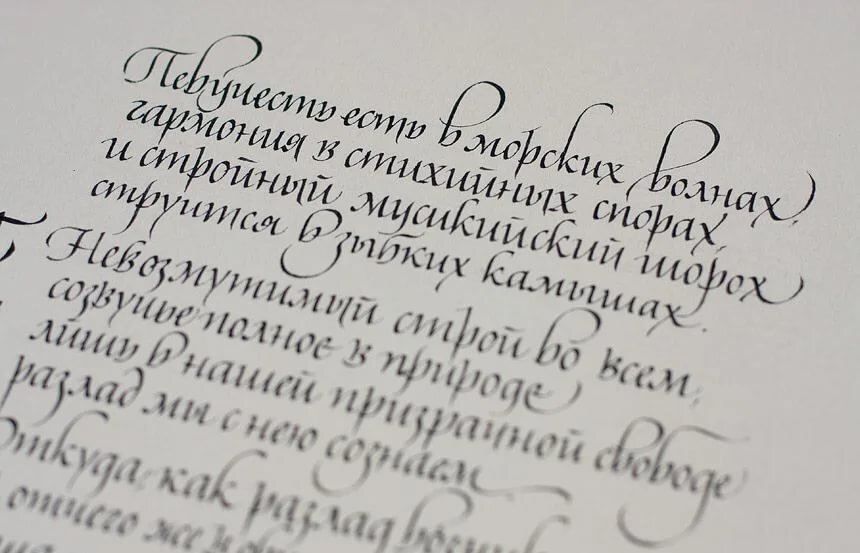 Певучесть есть в морских волнах,
гармония в стихийных спорах,
и стройный мусикийский шорох
струится в зыбких камышах.
Невозмутимый строй во всем,
созвучье полное в природе,
лишь в нашей призрачной свободе
разлад мы с нею сознаем.
Откуда, как разлад
отчего же